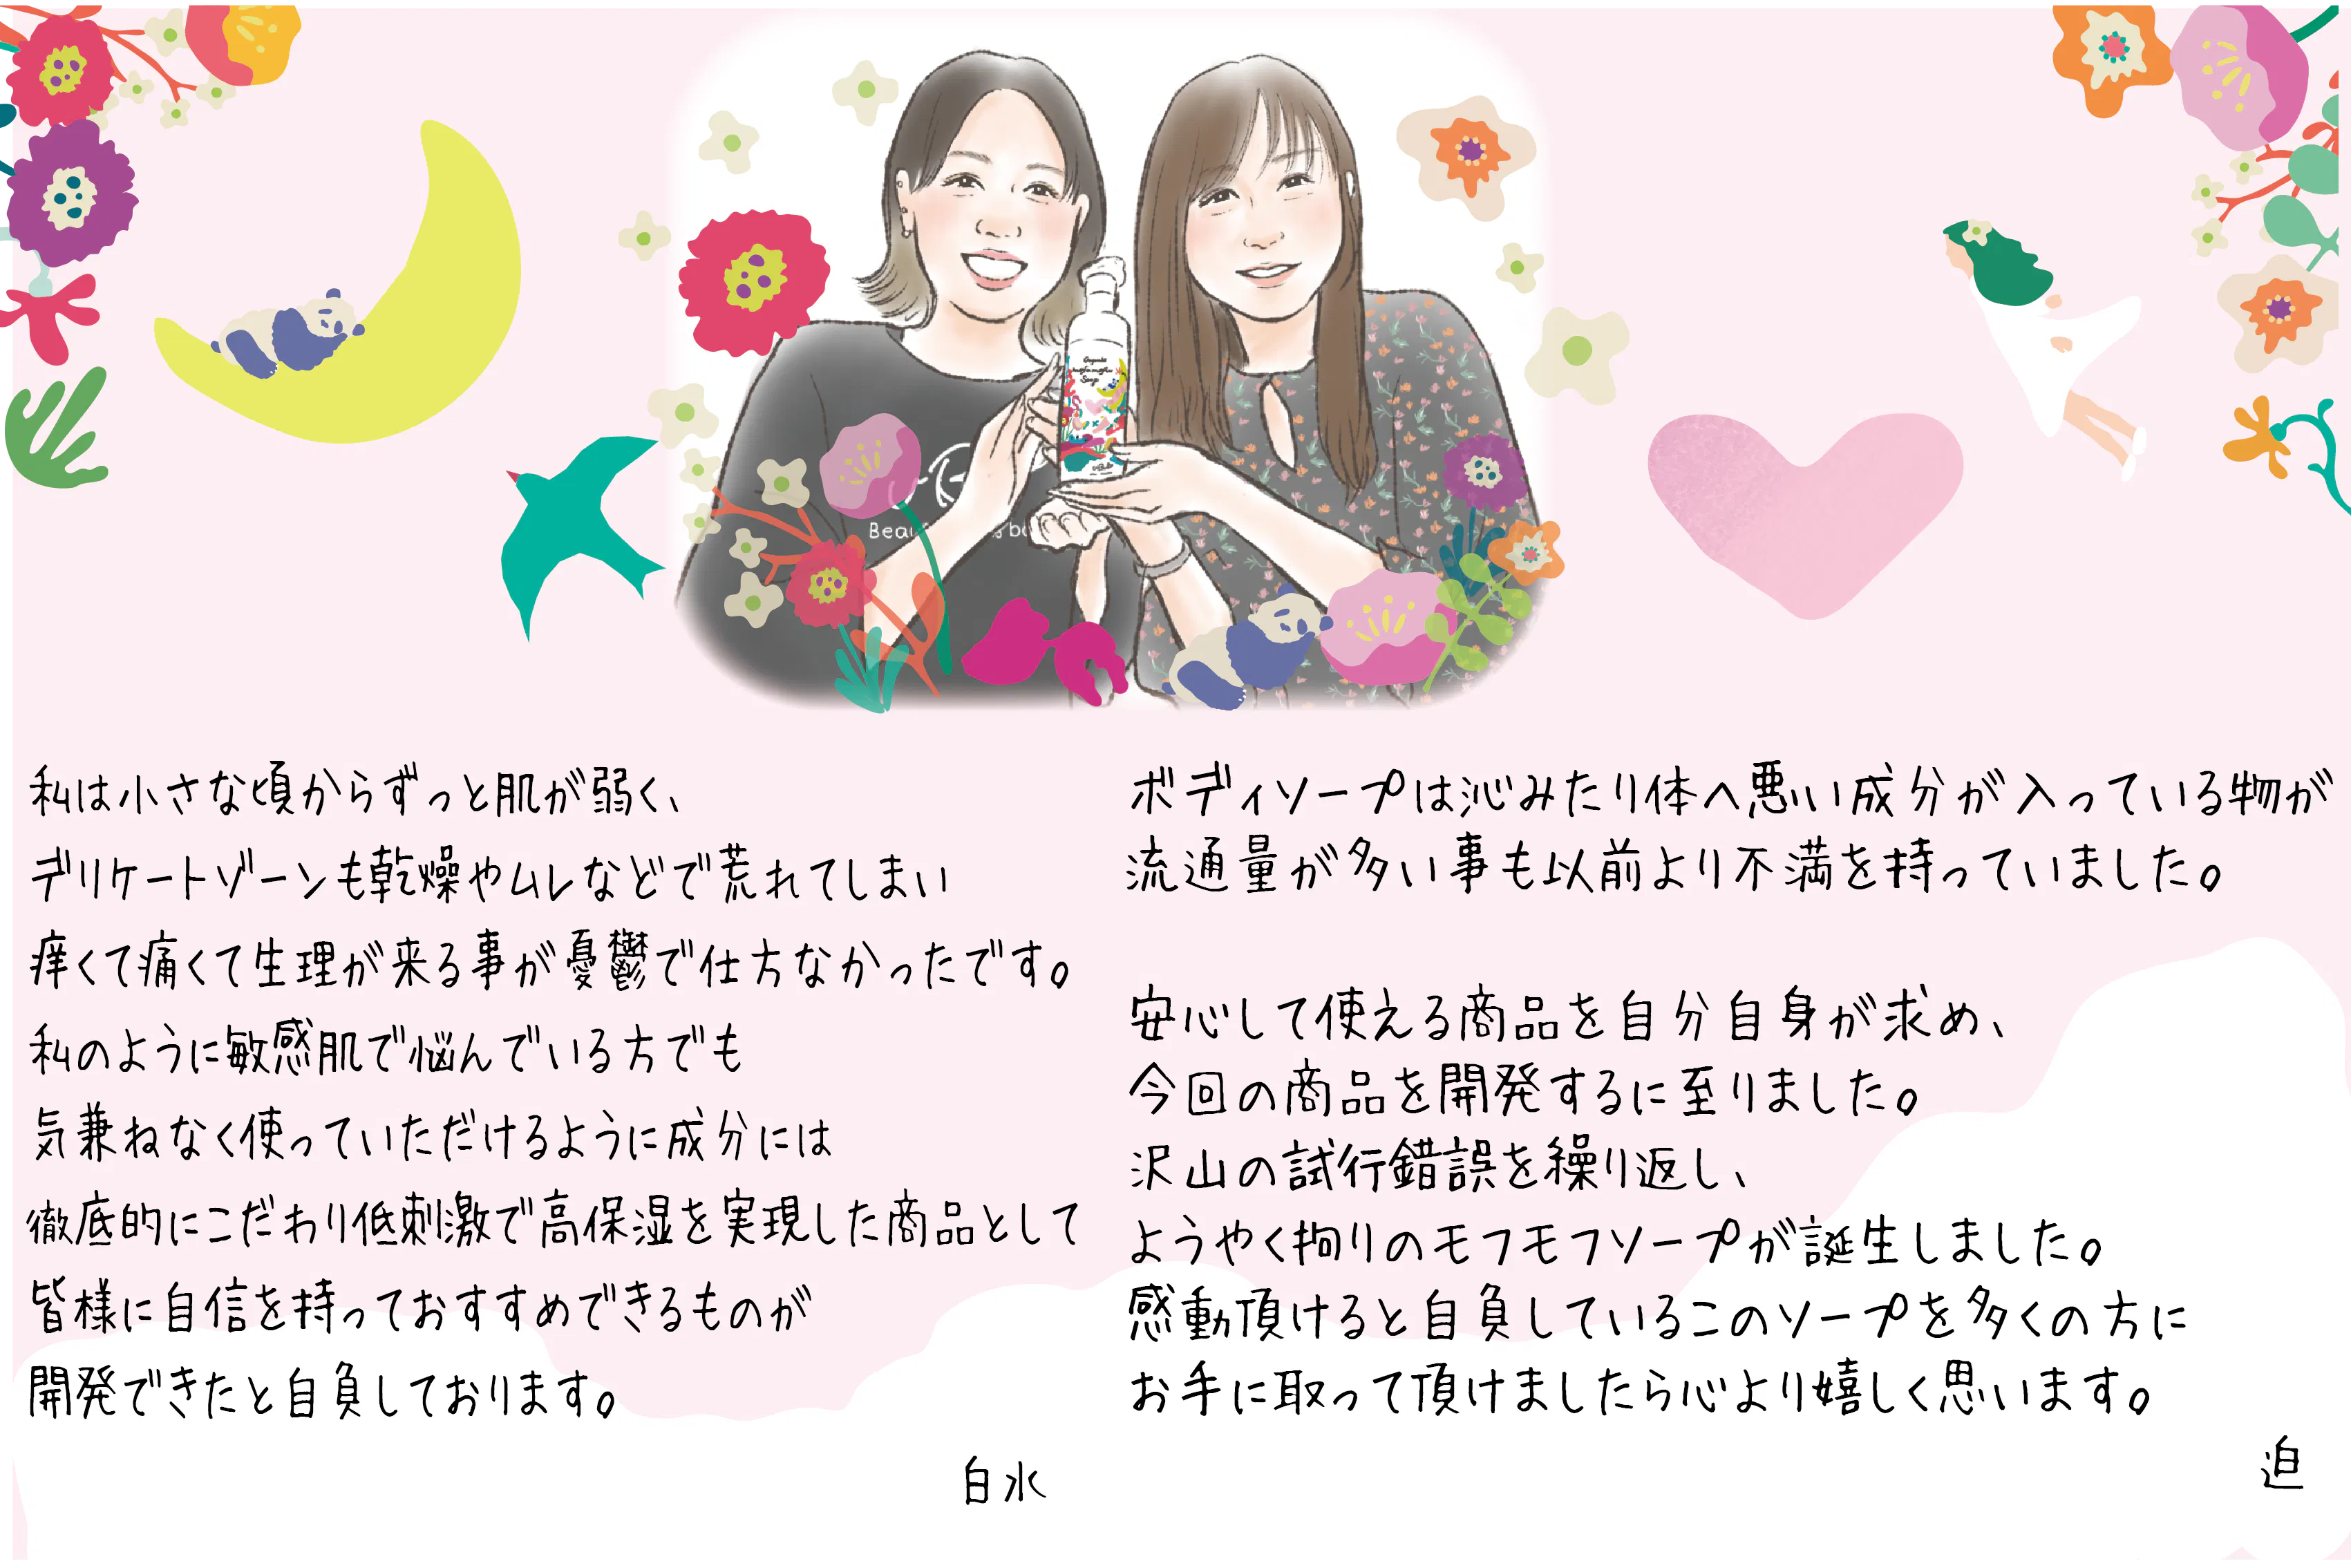 Organic
mofumofu
Soap
私は小さな頃からずっと肌が弱く、
デリケートゾーンも乾燥やムレなどで荒れてしまい
痒くて痛くて生理が来る事が憂鬱で仕方なかったです。
私のように敏感肌で悩んでいる方でも
気兼ねなく使っていただけるように成分には
徹底的にこだわり低刺激で高保湿を実現した商品として
皆様に自信を持っておすすめできるものが
開発できたと自負しております。
白水
ボディソープは沁みたり体へ悪い成分が入っている物が
流通量が多い事も以前より不満を持っていました。
安心して使える商品を自分自身が求め、
今回の商品を開発するに至りました。
沢山の試行錯誤を繰り返し、
ようやく拘りのモフモフソープが誕生しました。
感動頂けると自負しているこのソープを多くの方に
お手に取って頂けましたら心より嬉しく思います。
迫